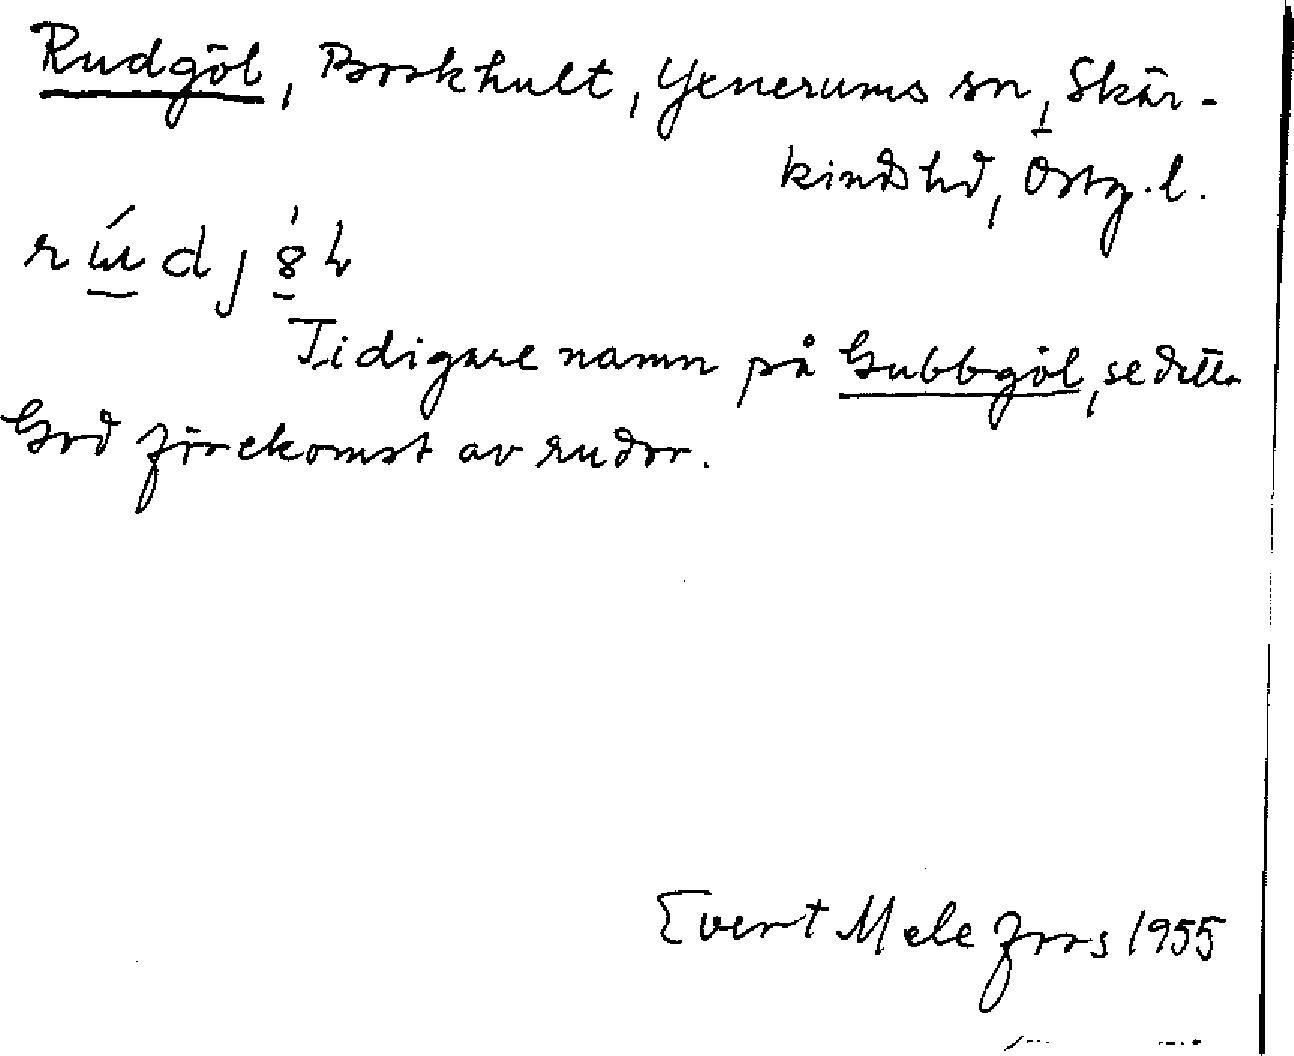 Rudgöl, Borkhult, Yxnerums sn, Skär-
kinds hd, Östg. l.
Tidigare namn på Gubbgöl, se detta
God förekomst av rudor.
Evert Melefors 1955